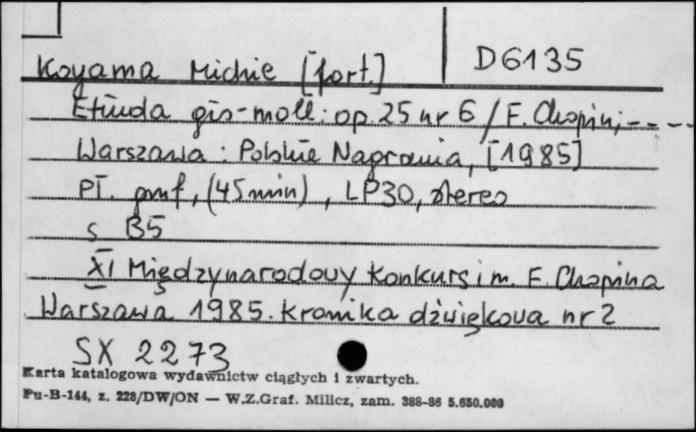 D6135
Koyama Michie [fort.]
Etiuda gis-moll: op. 25 nr 6 / F. Chopin; ----
Warszawa : Polskie Nagrania, [1985]
Pł. gmf, (45 min), LP30, stereo
s. B5
XI Międzynarodowy Konkurs im. F. Chopina
Warszawa 1985. Kronika dźwiękowa nr 2
SX 2273
Karta katalogowa wydawnictw ciągłych i zwartych.
Pu-B-144, z. 228/DW/ON — W.Z.Graf. Milicz, zam. 388-86 5.650.000